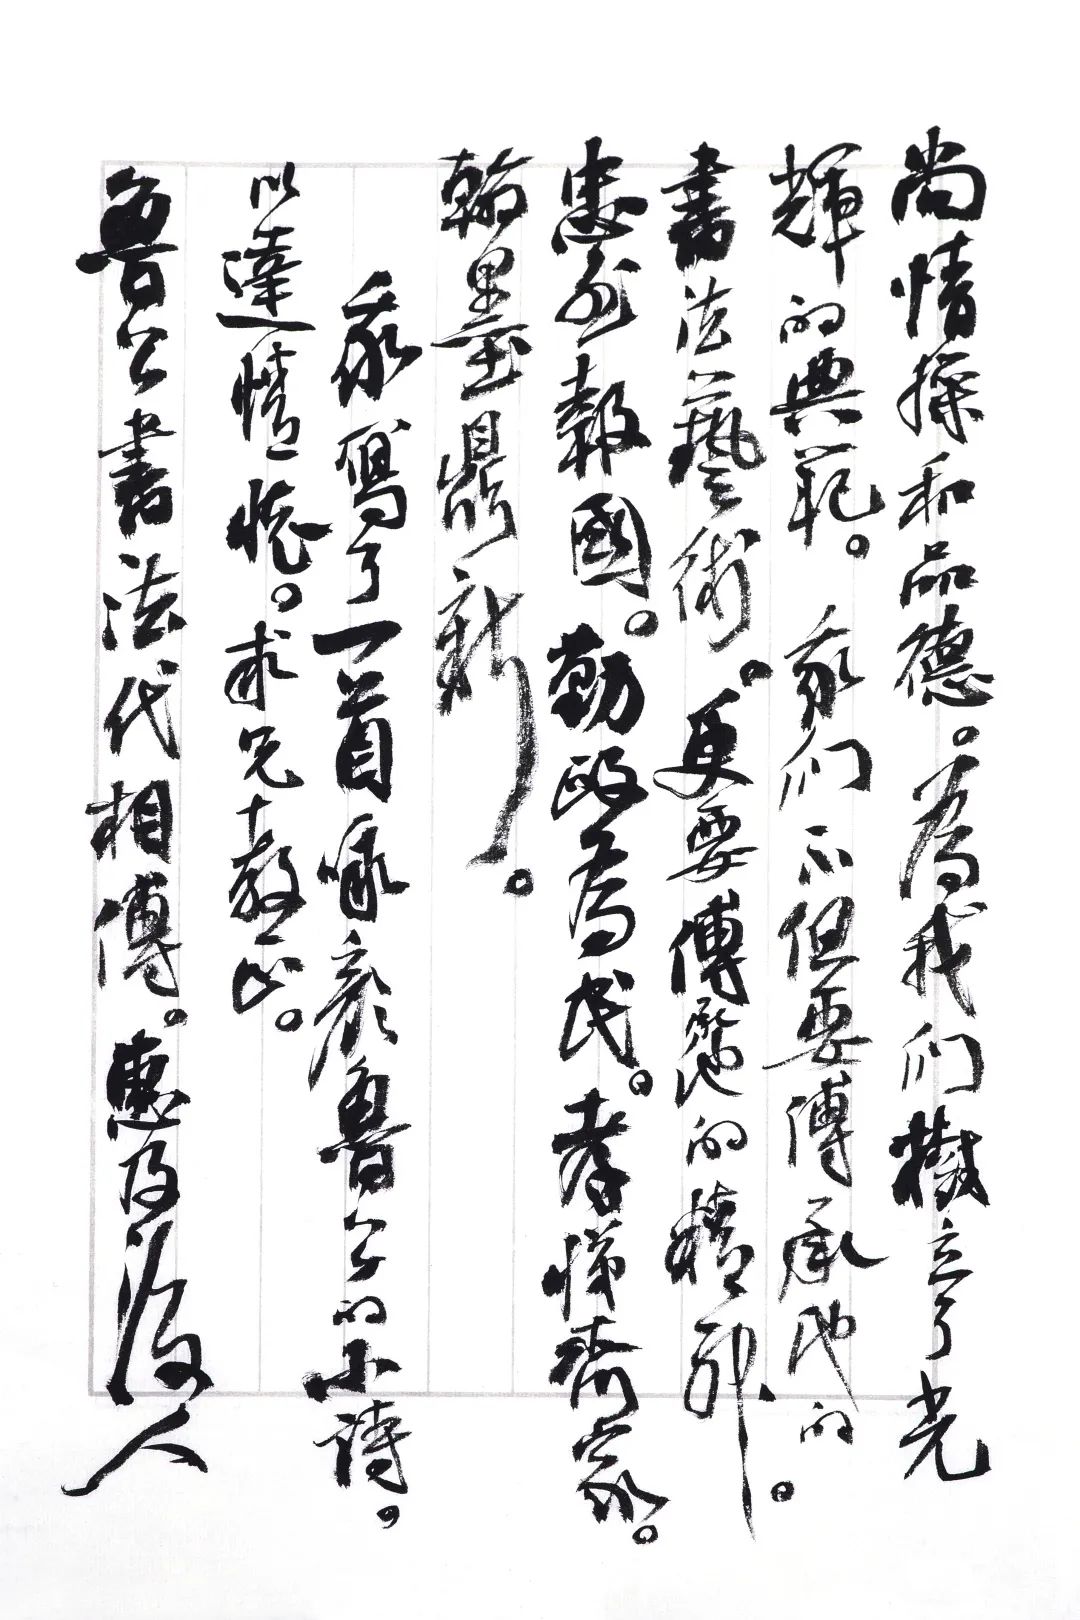 尚情操和品德。為我們樹立了光
輝的典範。我們不但要傳承他的
書法藝術。更要傳承他的精神。
忠烈報國。勤政為民。孝悌齊家。
翰墨鼎新。
我寫了一首咏顏魯公的小詩。
以達情懷。求兄教正。
魯公書法代相傳。惠及後人